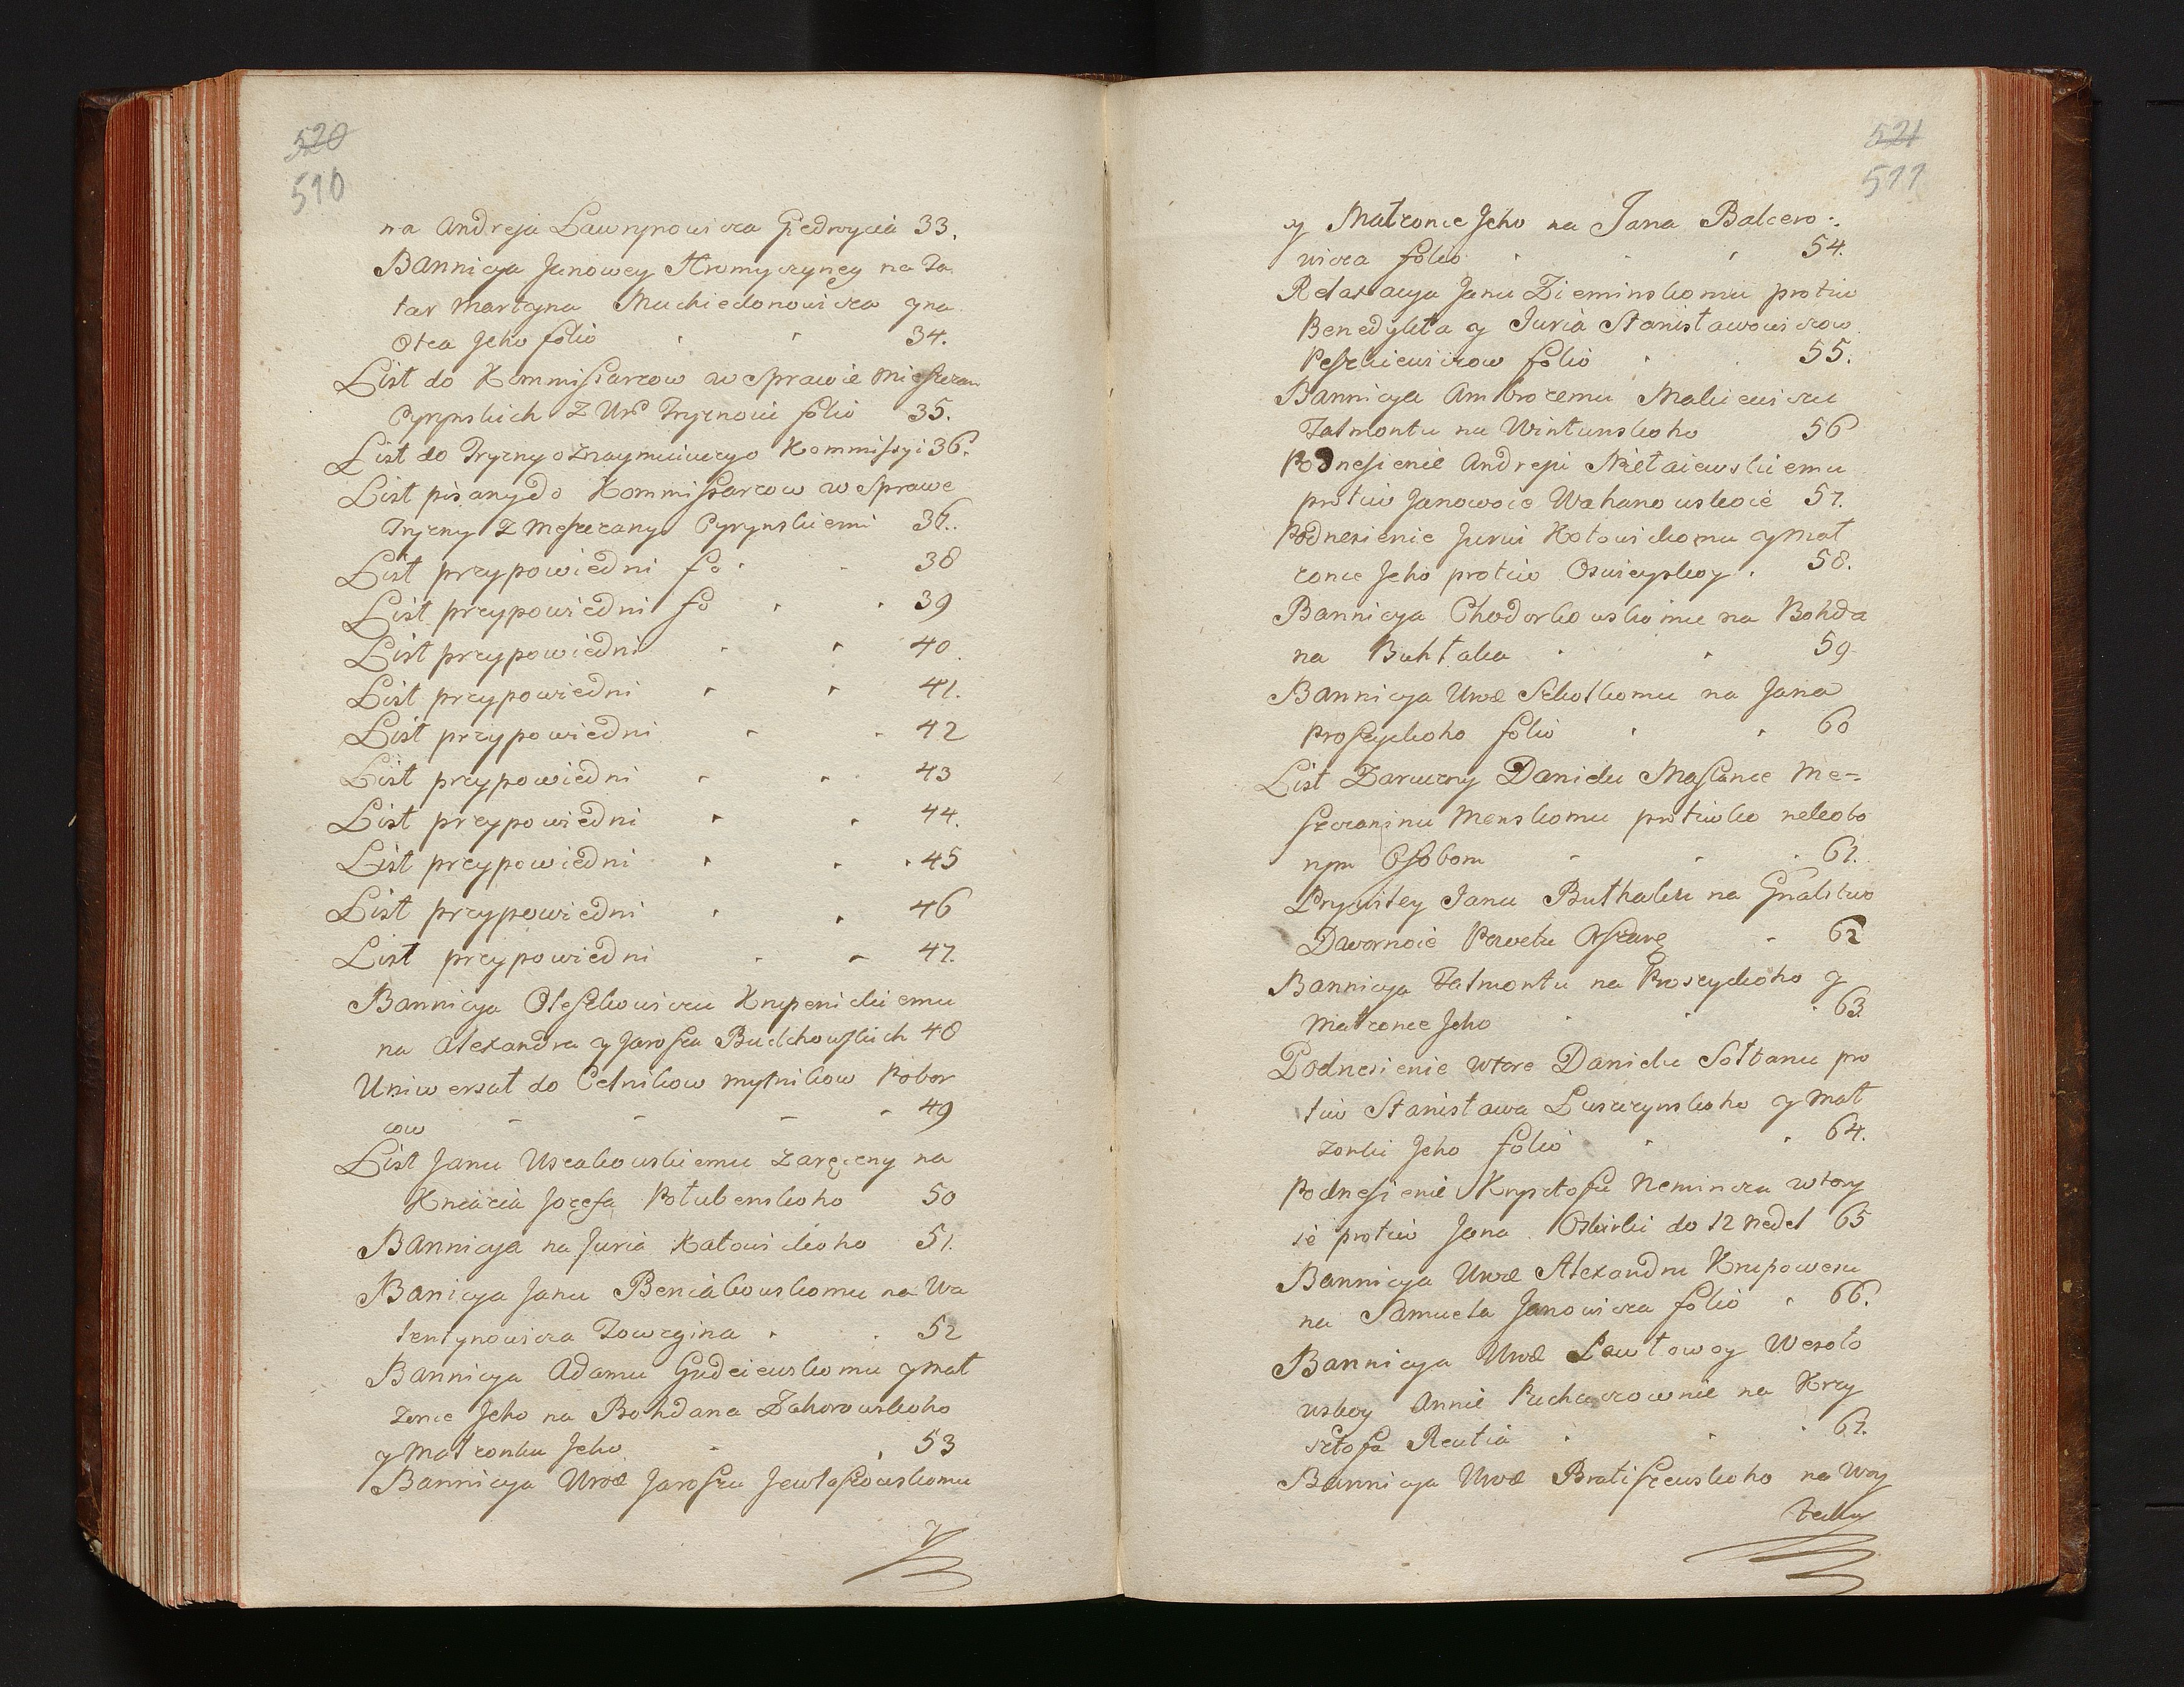 520
510
na Andreja Lawrynowicza Giedroycia 33.
Bannicya Janowey Hromyczyney na Ta
tar Martyna Machiedonowicza y na
Otca Jeho folio 34.
List do Kommissarzow w Sprawie Mieszczan
Cyrynskich Z Urd Tryznow folio 35.
List do Tryzny oznaymuiuczyo Kommissyi 36.
List pisany do Kommissarzow w Sprawe
Tryzny Z Meszczany Cyrynskiemi 37.
List przypowiedni fo 38
List przypowiedni fo 39
List przypowiedni 40
List przypowiedni 41.
List przypowiedni 42
List przypowiedni 43
List przypowiedni 44.
List przypowiedni 45
List przypowiedni 46
List przypowiedni 47.
Bannicya Oleszkowiczu Krupenickiemu
na Alexandra y Jarosza Budchowskich 48
Uniwersał do Celnikow mytnikow Pobor
cow 49
List Janu Uzcakowskiemu Zaręczny na
Kniazia Jozefa Połubenskoho 50
Bannicya na Juria Kotowickoho 51.
Banicya Janu Beniakowskomu na Wa
lentynowicza Towgina 52
Bannicya Adamu Gudziewskomu y Mał
żonce Jeho na Bohdana Zahorowskoho
y Małżonku Jeho 53
Bannicya Urod Jaroszu Jewłaszowskomu
y
521
511
y Małżonce Jeho na Jana Balcero
wicza folio 54.
Relaxacya Janu Zieminskomu protiw
Benedykta y Juria Stanisławowiczow
Peszkiewiczow folio 55.
Bannicya Ambrożemu Malicewiczu
Talmontu na Wintunskoho 56
Podnesienie Andreju Nietaiewskiemu
protiw Janowoie Wahanowskoie 57.
Podnesienie Juriu Kotowickomu y Mał
żonce Jeho protiw Oswieyskoy 58.
Bannicya Chodorkowskomu na Bohda
na Buhtaka 59
Bannicya Urod Szkotkomu na Jana
Proszyckoho folio 60
List Zaruczny Danielu Maslance Me-
szczaninu Menskomu protiwko nekoto
rym Osobom 61.
Prywiley Janu Buthaku na Gwałtwo
Dawornoie Pawełu Oszarę 62
Bannicya Talmontu na Proszyckoho y
Małżonce Jeho 63.
Podnesienie wtore Danielu Sołtanu pro
tiw Stanisława Luszczynskoho y Mał
żonki Jeho folio 64.
Podnesienie Krysztofu Nemircza wtory
ie protiw Jana Oskirki do 12 Nedel 65
Bannicya Urod Alexandru Krupowesu
na Samuela Janowicza folio 66.
Bannicya Urod Lawłowoy Wesoło
wskoy Annie Puchaczownie na Krzy
sztofa Reutia 67.
Bannicya Urod Bratiszewskoho na Woy
techa